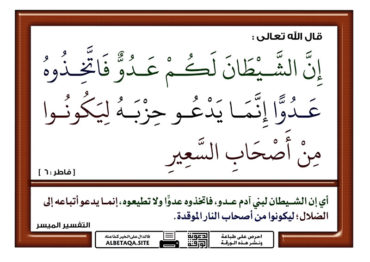 قال الله تعالى :
إِنَّ الشَّيْطَانَ لَكُمْ عَدُوٌّ فَاتَّخِذُوهُ
عَدُوًّا إِنَّمَا يَدْعُو حِزْبَهُ لِيَكُونُوا
مِنْ أَصْحَابِ السَّعِيرِ
[ فاطر : ٦ ]
أي إن الشيطان لبني آدم عدو، فاتخذوه عدوًّا ولا تطيعوه، إنما يدعو أتباعه إلى
الضلال؛ ليكونوا من أصحاب النار الموقدة.
التفسير الميسر
احرص على طباعة
ونشر هذه الورقة
فالدال على الخير كفاعله
ALBETAQA.SITE